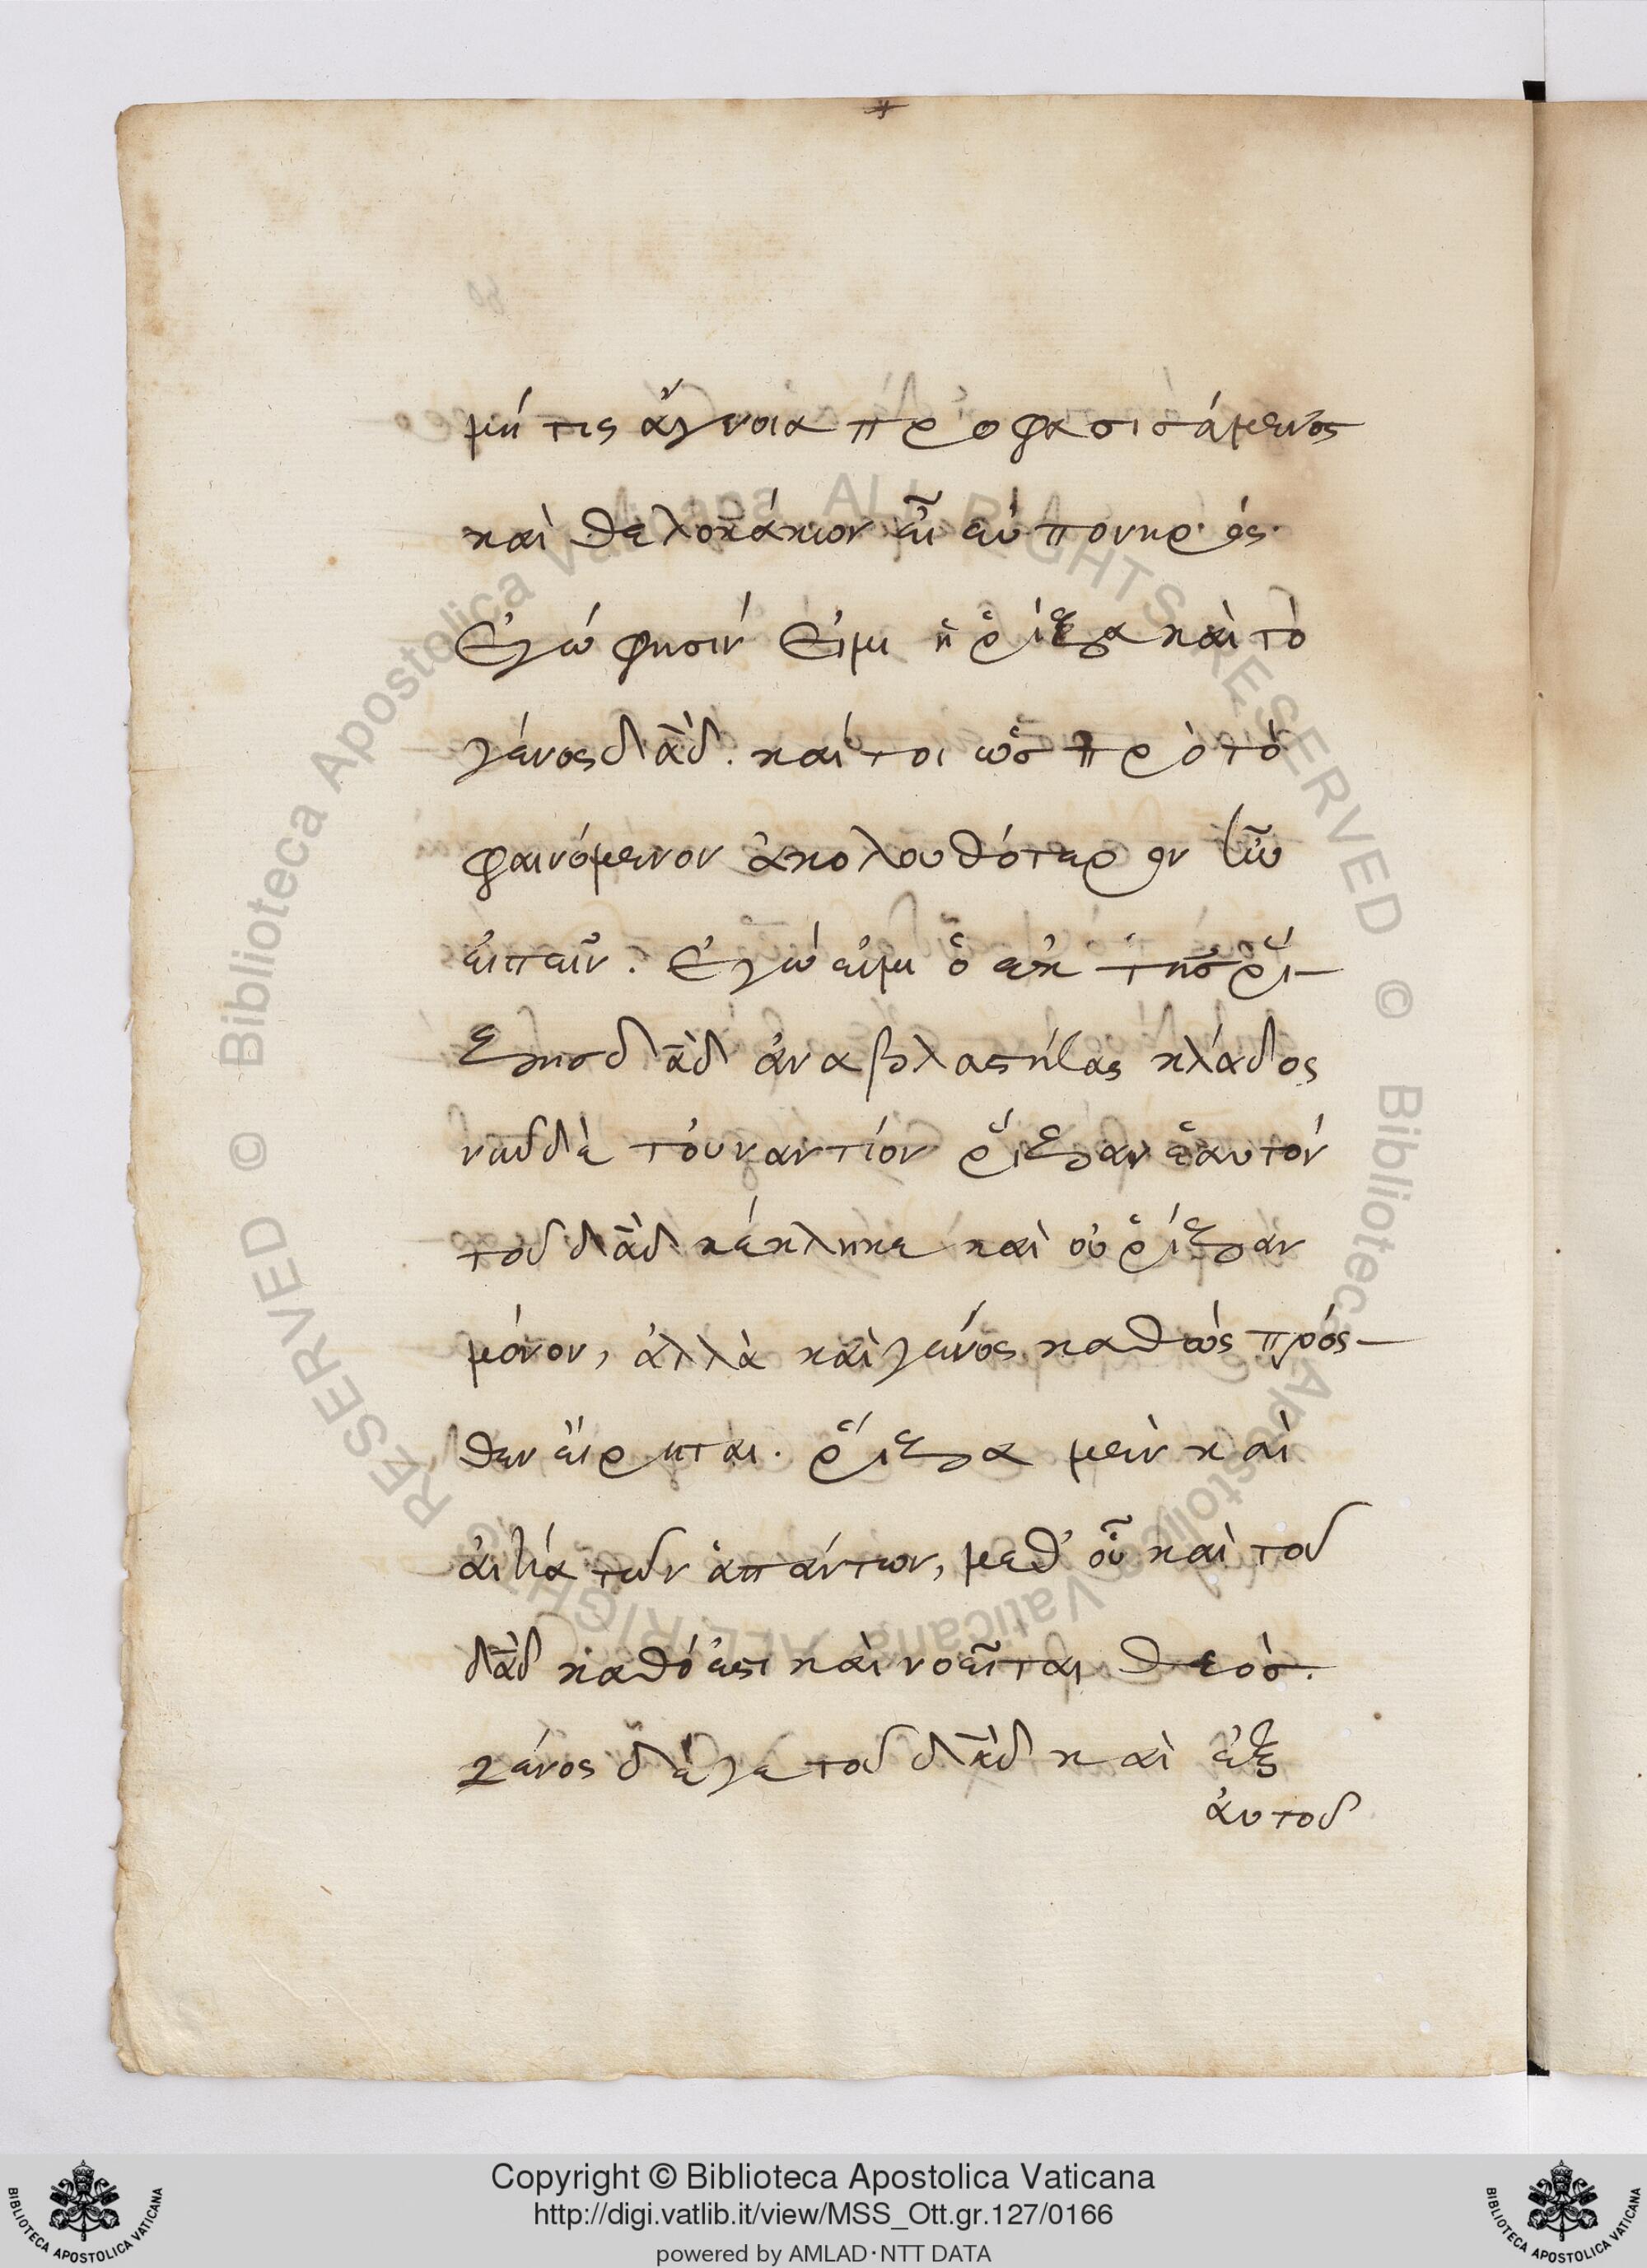 μή τις ἄγνοια προφασισάμενος
καὶ θελοκάκιον εἶ εὐ πονηρός·
Ἐγώ φησίν εἰμι ἡ ῥίζα καὶ τὸ
γένος δᾱδ. καί τοι ὡς πρὸ τὸ
φαινόμενον ἀκολουθότερον ἦν
εἰπεῖν. Ἐγώ εἰμι ὁ ἐκ τῆς ῥί-
ζης δᾱδ ἀναβλαστήσας κλάδος
νῦν δὲ τὀυναντίον ῥίζαν ἑαυτόν
τοῦ δᾱδ κέκληκε καὶ οὐ ῥίζαν
μόνον, ἀλλὰ καὶ γένος καθὼς πρόσ-
θεν εἴρηται. ῥίζα μεὶν καὶ
ἀιτία τῶν ἁπάντων, μεθ' οὗ καὶ τοῦ
δᾱδ καθό ἐστι καὶ νοεῖται θεός.
γένος δέ γε τοῦ δᾱδ καὶ ἐξ
ἀυτοῦ
Copyright © Biblioteca Apostolica Vaticana
http://digi.vatlib.it/view/MSS_Ott.gr.127/0166
powered by AMLAD·NTT DATA
BIBLIOTECA APOSTOLICA VATICANA
BIBLIOTECA APOSTOLICA VATICANA
© Biblioteca Apostolica Vaticana ALL RIGHTS RESERVED © Biblioteca Apostolica Vaticana ALL RIGHTS RESERVED